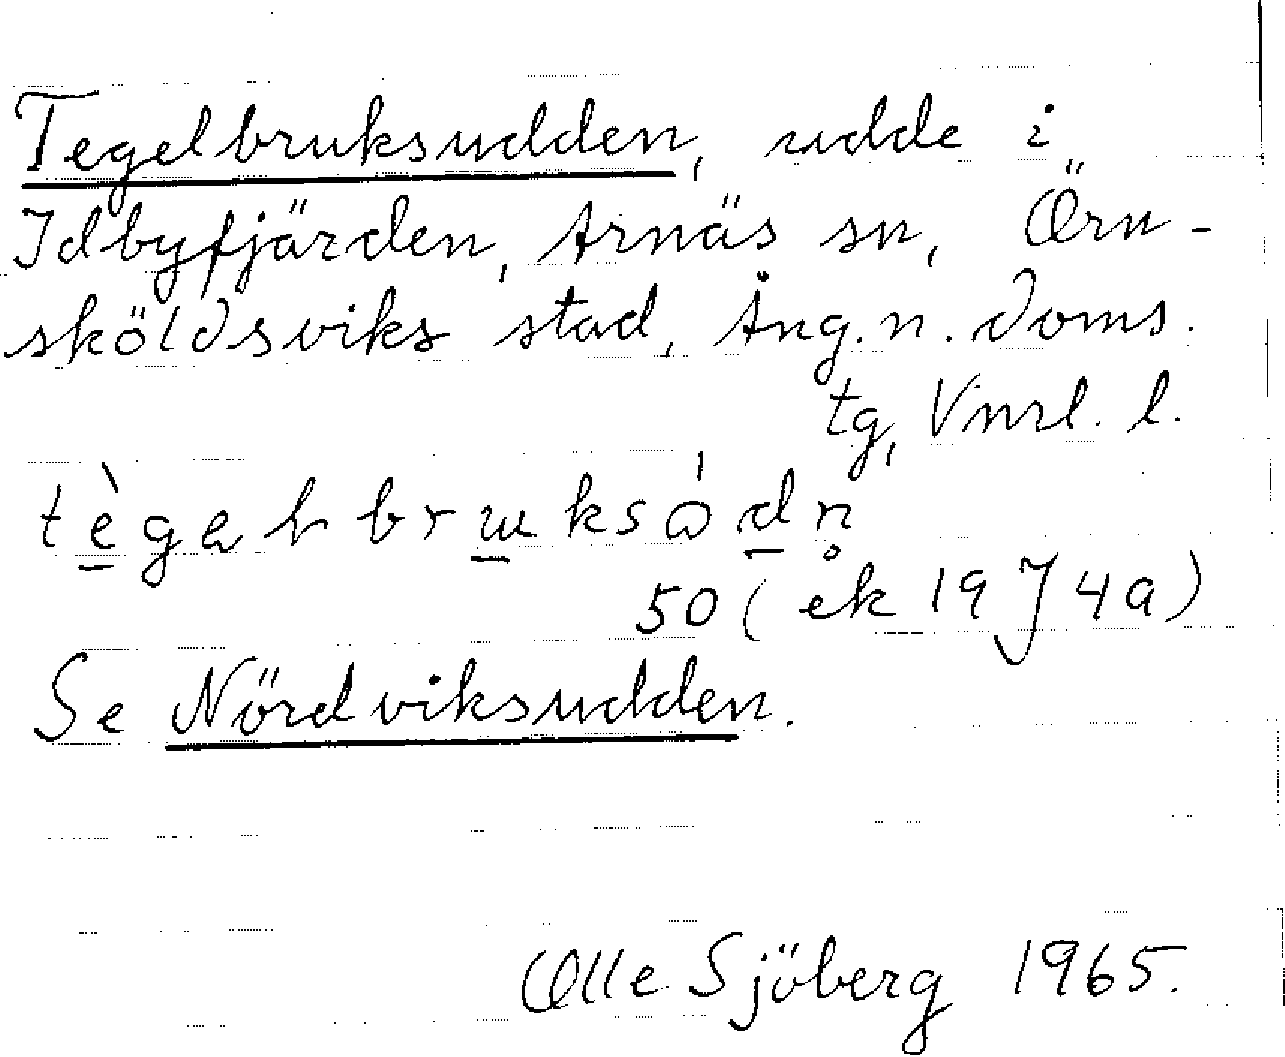 Tegelbruksudden, udde i
Idbyfjärden, Arnäs sn, Örn-
sköldsviks stad, Ång. n. doms.
tg, Vnrl. l.
50 (ek 19 J 4a)
Se Nördviksudden.
Olle Sjöberg 1965.